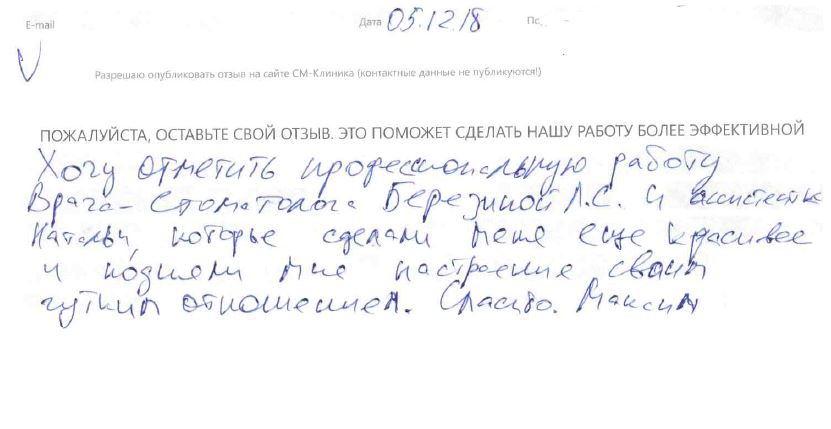 E-mail Дата 05.12.18 Пс
Разрешаю опубликовать отзыв на сайте СМ-Клиника (контактные данные не публикуются!)
ПОЖАЛУЙСТА, ОСТАВЬТЕ СВОЙ ОТЗЫВ. ЭТО ПОМОЖЕТ СДЕЛАТЬ НАШУ РАБОТУ БОЛЕЕ ЭФФЕКТИВНОЙ
Хочу отметить профессиональную работу
Врача-Стоматолога Березиной Л.С. и ассистента
Натальи, которые сделали меня еще красивее
и подняли мне настроение своим
чутким отношением. Спасибо. Максим